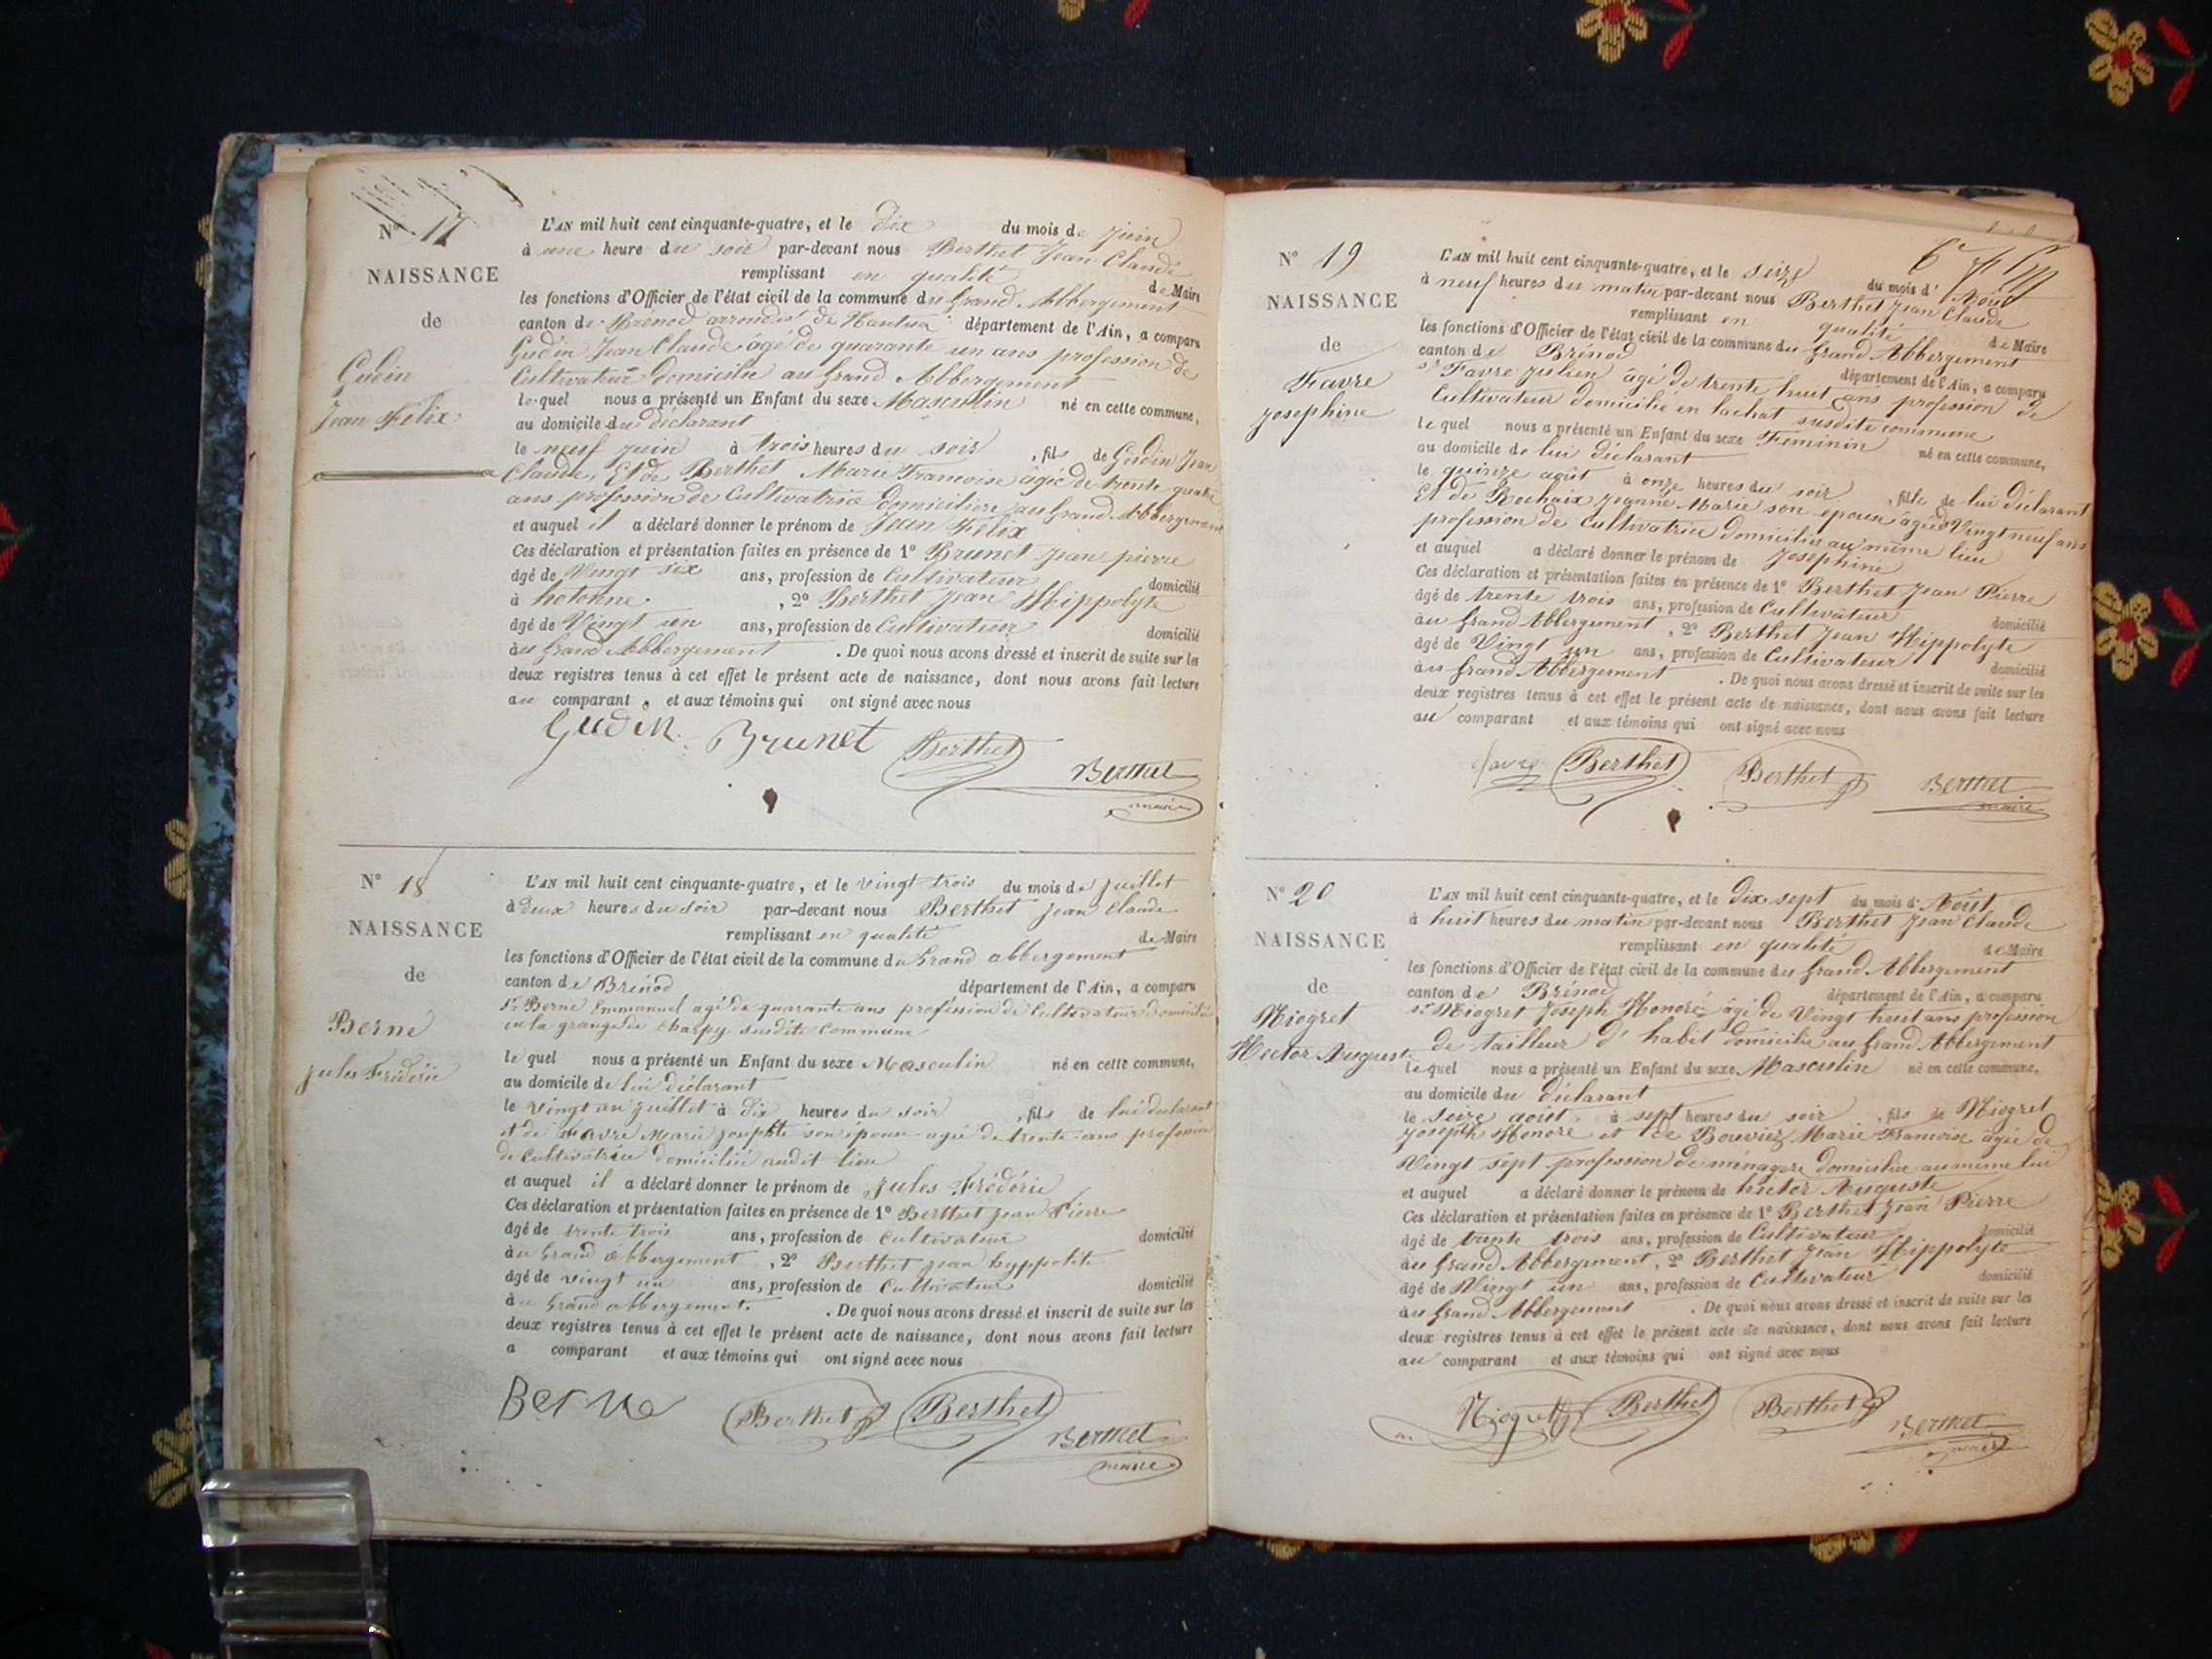 N° 17
NAISSANCE
de
Gudin
Jean Félix
L'AN mil huit cent cinquante-quatre, et le Dix du mois de Juin
à une heure du soir par-devant nous Berthet Jean Claude
remplissant en qualité de Maire
les fonctions d'Officier de l'état civil de la commune du Grand Abbergement
canton de Brénod arrondist de Nantua département de l'Ain, a comparu
Gudin Jean Claude agé de quarante un ans profession de
Cultivateur domicilié au Grand Abbergement
lequel nous a présenté un Enfant du sexe Masculin né en cette commune,
au domicile du déclarant
le neuf juin à trois heures du soir, fils de Gudin Jean
Claude, Et de Berthet Marie Francoise âgée de trente quatre
ans profession de Cultivatrice domiciliere au Grand Abbergement
et auquel il a déclaré donner le prénom de Jean Félix
Ces déclaration et présentation faites en présence de 1° Brunet Jean pierre
âgé de Vingt six ans, profession de Cultivateur domicilié
à hotonne, 2° Berthet Jean Hippolyte
âgé de Vingt un ans, profession de Cultivateur domicilié
au Grand Abbergement. De quoi nous avons dressé et inscrit de suite sur les
deux registres tenus à cet effet le présent acte de naissance, dont nous avons fait lecture
au comparant, et aux témoins qui ont signé avec nous
Gudin Brunet Berthet Berthet
maire
N° 18
NAISSANCE
de
Berne
Jules Fréderic
L'AN mil huit cent cinquante-quatre, et le vingt trois du mois de juillet
à deux heures du soir par-devant nous Berthet Jean Claude
remplissant en qualité de Maire
les fonctions d'Officier de l'état civil de la commune du Grand abbergement
canton de Brénod département de l'Ain, a comparu
sr Berne Emmanuel agé de quarante ans profession de Cultivateur domicilié
en la grange de Charpy susdite commune
lequel nous a présenté un Enfant du sexe Masculin né en cette commune,
au domicile de lui déclarant
le vingt un juillet à dix heures du soir, fils de lui declarant
et de Favre Marie josephte son épouse agée de trente ans profession
de cultivatrice domiciliée audit lieu
et auquel il a déclaré donner le prénom de Jules Fréderic
Ces déclaration et présentation faites en présence de 1° Berthet Jean Pierre
âgé de trente trois ans, profession de cultivateur domicilié
au Grand abbergement, 2° Berthet jean hyppolite
âgé de vingt un ans, profession de Cultivateur domicilié
au Grand abbergement. De quoi nous avons dressé et inscrit de suite sur les
deux registres tenus à cet effet le présent acte de naissance, dont nous avons fait lecture
a comparant et aux témoins qui ont signé avec nous
Berne Berthet Berthet Berthet
maire
N° 19
NAISSANCE
de
Favre
josephine
L'AN mil huit cent cinquante-quatre, et le seize du mois d'Aout
à neuf heures du matin par-devant nous Berthet Jean Claude
remplissant en qualité de Maire
les fonctions d'Officier de l'état civil de la commune du Grand Abbergement
canton de Brénod département de l'Ain, a comparu
sr Favre Julien âgé de trente huit ans profession de
Cultivateur domicilié en lachat susdite commune
lequel nous a présenté un Enfant du sexe Féminin né en cette commune,
au domicile de lui déclarant
le quinze août à onze heures du soir, fille de lui déclarant
Et de Rochaix Jeanne Marie son epouse âgée de Vingt neuf ans
profession de cultivatrice domiciliée au même lieu
et auquel a déclaré donner le prénom de Josephine
Ces déclaration et présentation faites en présence de 1° Berthet Jean Pierre
âgé de trente trois ans, profession de Cultivateur domicilié
au Grand Abbergement, 2° Berthet Jean Hippolyte
âgé de Vingt un ans, profession de Cultivateur domicilié
au Grand Abbergement. De quoi nous avons dressé et inscrit de suite sur les
deux registres tenus à cet effet le présent acte de naissance, dont nous avons fait lecture
au comparant et aux témoins qui ont signé avec nous
favre Berthet Berthet Berthet
maire
N° 20
NAISSANCE
de
Niogret
Hector Auguste
L'AN mil huit cent cinquante-quatre, et le Dix sept du mois d'Août
à huit heures du matin par-devant nous Berthet Jean Claude
remplissant en qualité de Maire
les fonctions d'Officier de l'état civil de la commune du Grand Abbergement
canton de Brénod département de l'Ain, a comparu
sr Niogret Joseph Honoré âgé de Vingt huit ans profession
de tailleur d'habit domicilié au Grand Abbergement
lequel nous a présenté un Enfant du sexe Masculin né en cette commune,
au domicile du déclarant
le seize août à sept heures du soir, fils de Niogret
Joseph Honoré et de Bouvier Marie Francoise âgée de
Vingt sept profession de ménagere domiciliée au meme lieu
et auquel a déclaré donner le prénom de hector Auguste
Ces déclaration et présentation faites en présence de 1° Berthet Jean Pierre
âgé de trente trois ans, profession de Cultivateur domicilié
au Grand Abbergement, 2° Berthet Jean Hippolyte
âgé de Vingt un ans, profession de Cultivateur domicilié
au Grand Abbergement. De quoi nous avons dressé et inscrit de suite sur les
deux registres tenus à cet effet le présent acte de naissance, dont nous avons fait lecture
au comparant et aux témoins qui ont signé avec nous
Niogret Berthet Berthet Berthet
maire